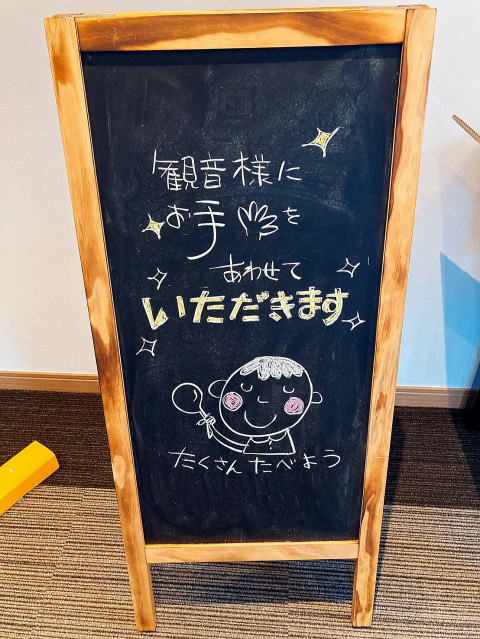 観音様に
お手を
あわせて
いただきます
たくさんたべよう